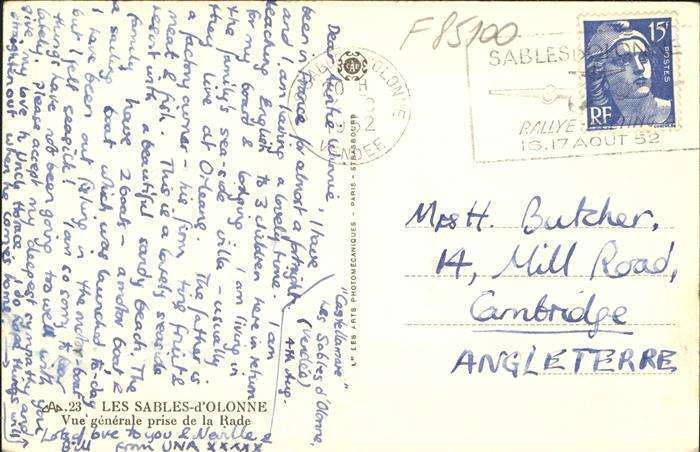 F85100
15F
POSTES
RF
SABLES D'OLONNE
RALLYE
15.17 AOUT 52
D'OLONNE
VENDEE
"Castellamare"
Les Sables d'Olonne,
(Vendée)
4th Aug.
Dear Auntie Winnie, I have
been in France for almost a fortnight
and I am having a lovely time. I am
teaching English to 3 children here in return
for my board & lodging. I am living in
the family's sea-side villa - usually
they live at Orleans. The father is
a factory owner - his firm tins fruit &
meat & fish. This is a lovely seaside
resort with a beautiful sandy beach. The
family have 2 boats - a motor boat &
a sailing boat which was launched to-day.
I have been out fishing in the motor-boat
but I felt seasick! I am so sorry to hear
things have not been going too well with you
lately. Please accept my deepest sympathy and
give my love to Uncle Horace. I do hope things will
straighten out when he comes home.
Lots of love to you & Neville &
Bill from UNA XXXXX
Mrs H. Butcher,
14, Mill Road,
Cambridge
ANGLETERRE
LES ARTS PHOTOMÉCANIQUES - PARIS - STRASBOURG
A. 23 LES SABLES-d'OLONNE
Vue générale prise de la Rade